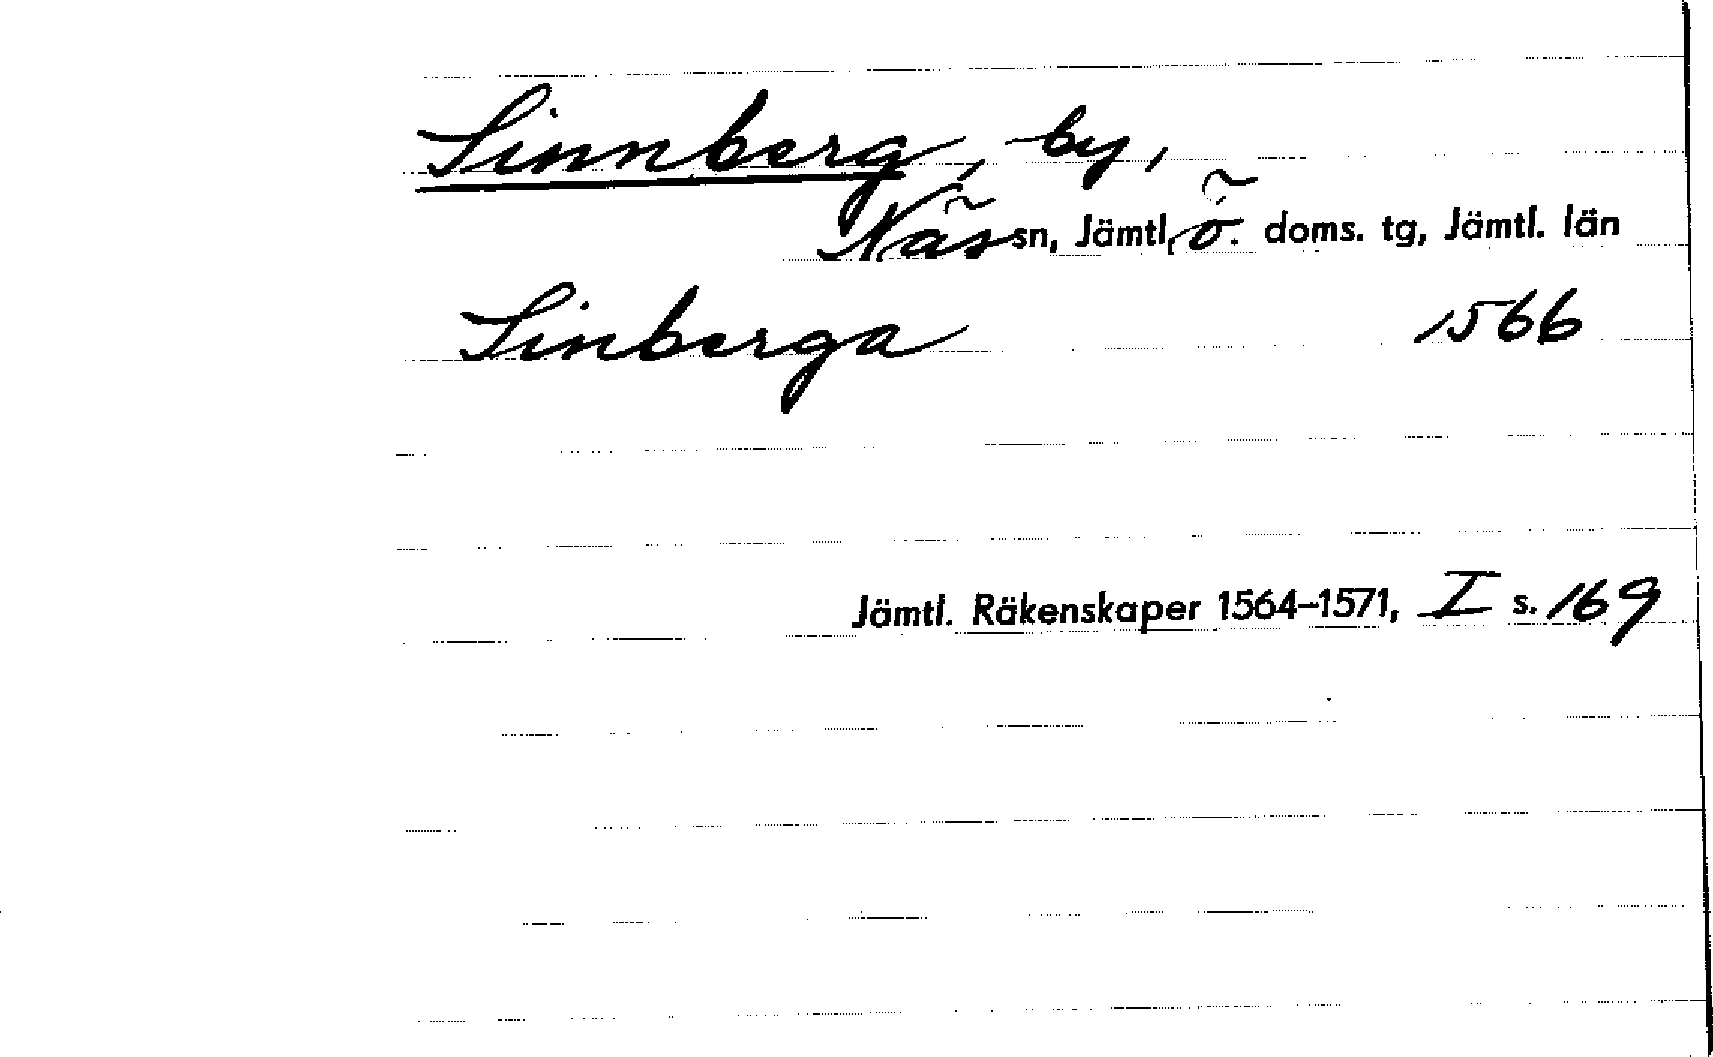 Sinnberg, by,
Näs sn, Jämtl. ö. doms. tg, Jämtl. län
Sinberga 1566
Jämtl. Räkenskaper 1564-1571, I s. 169